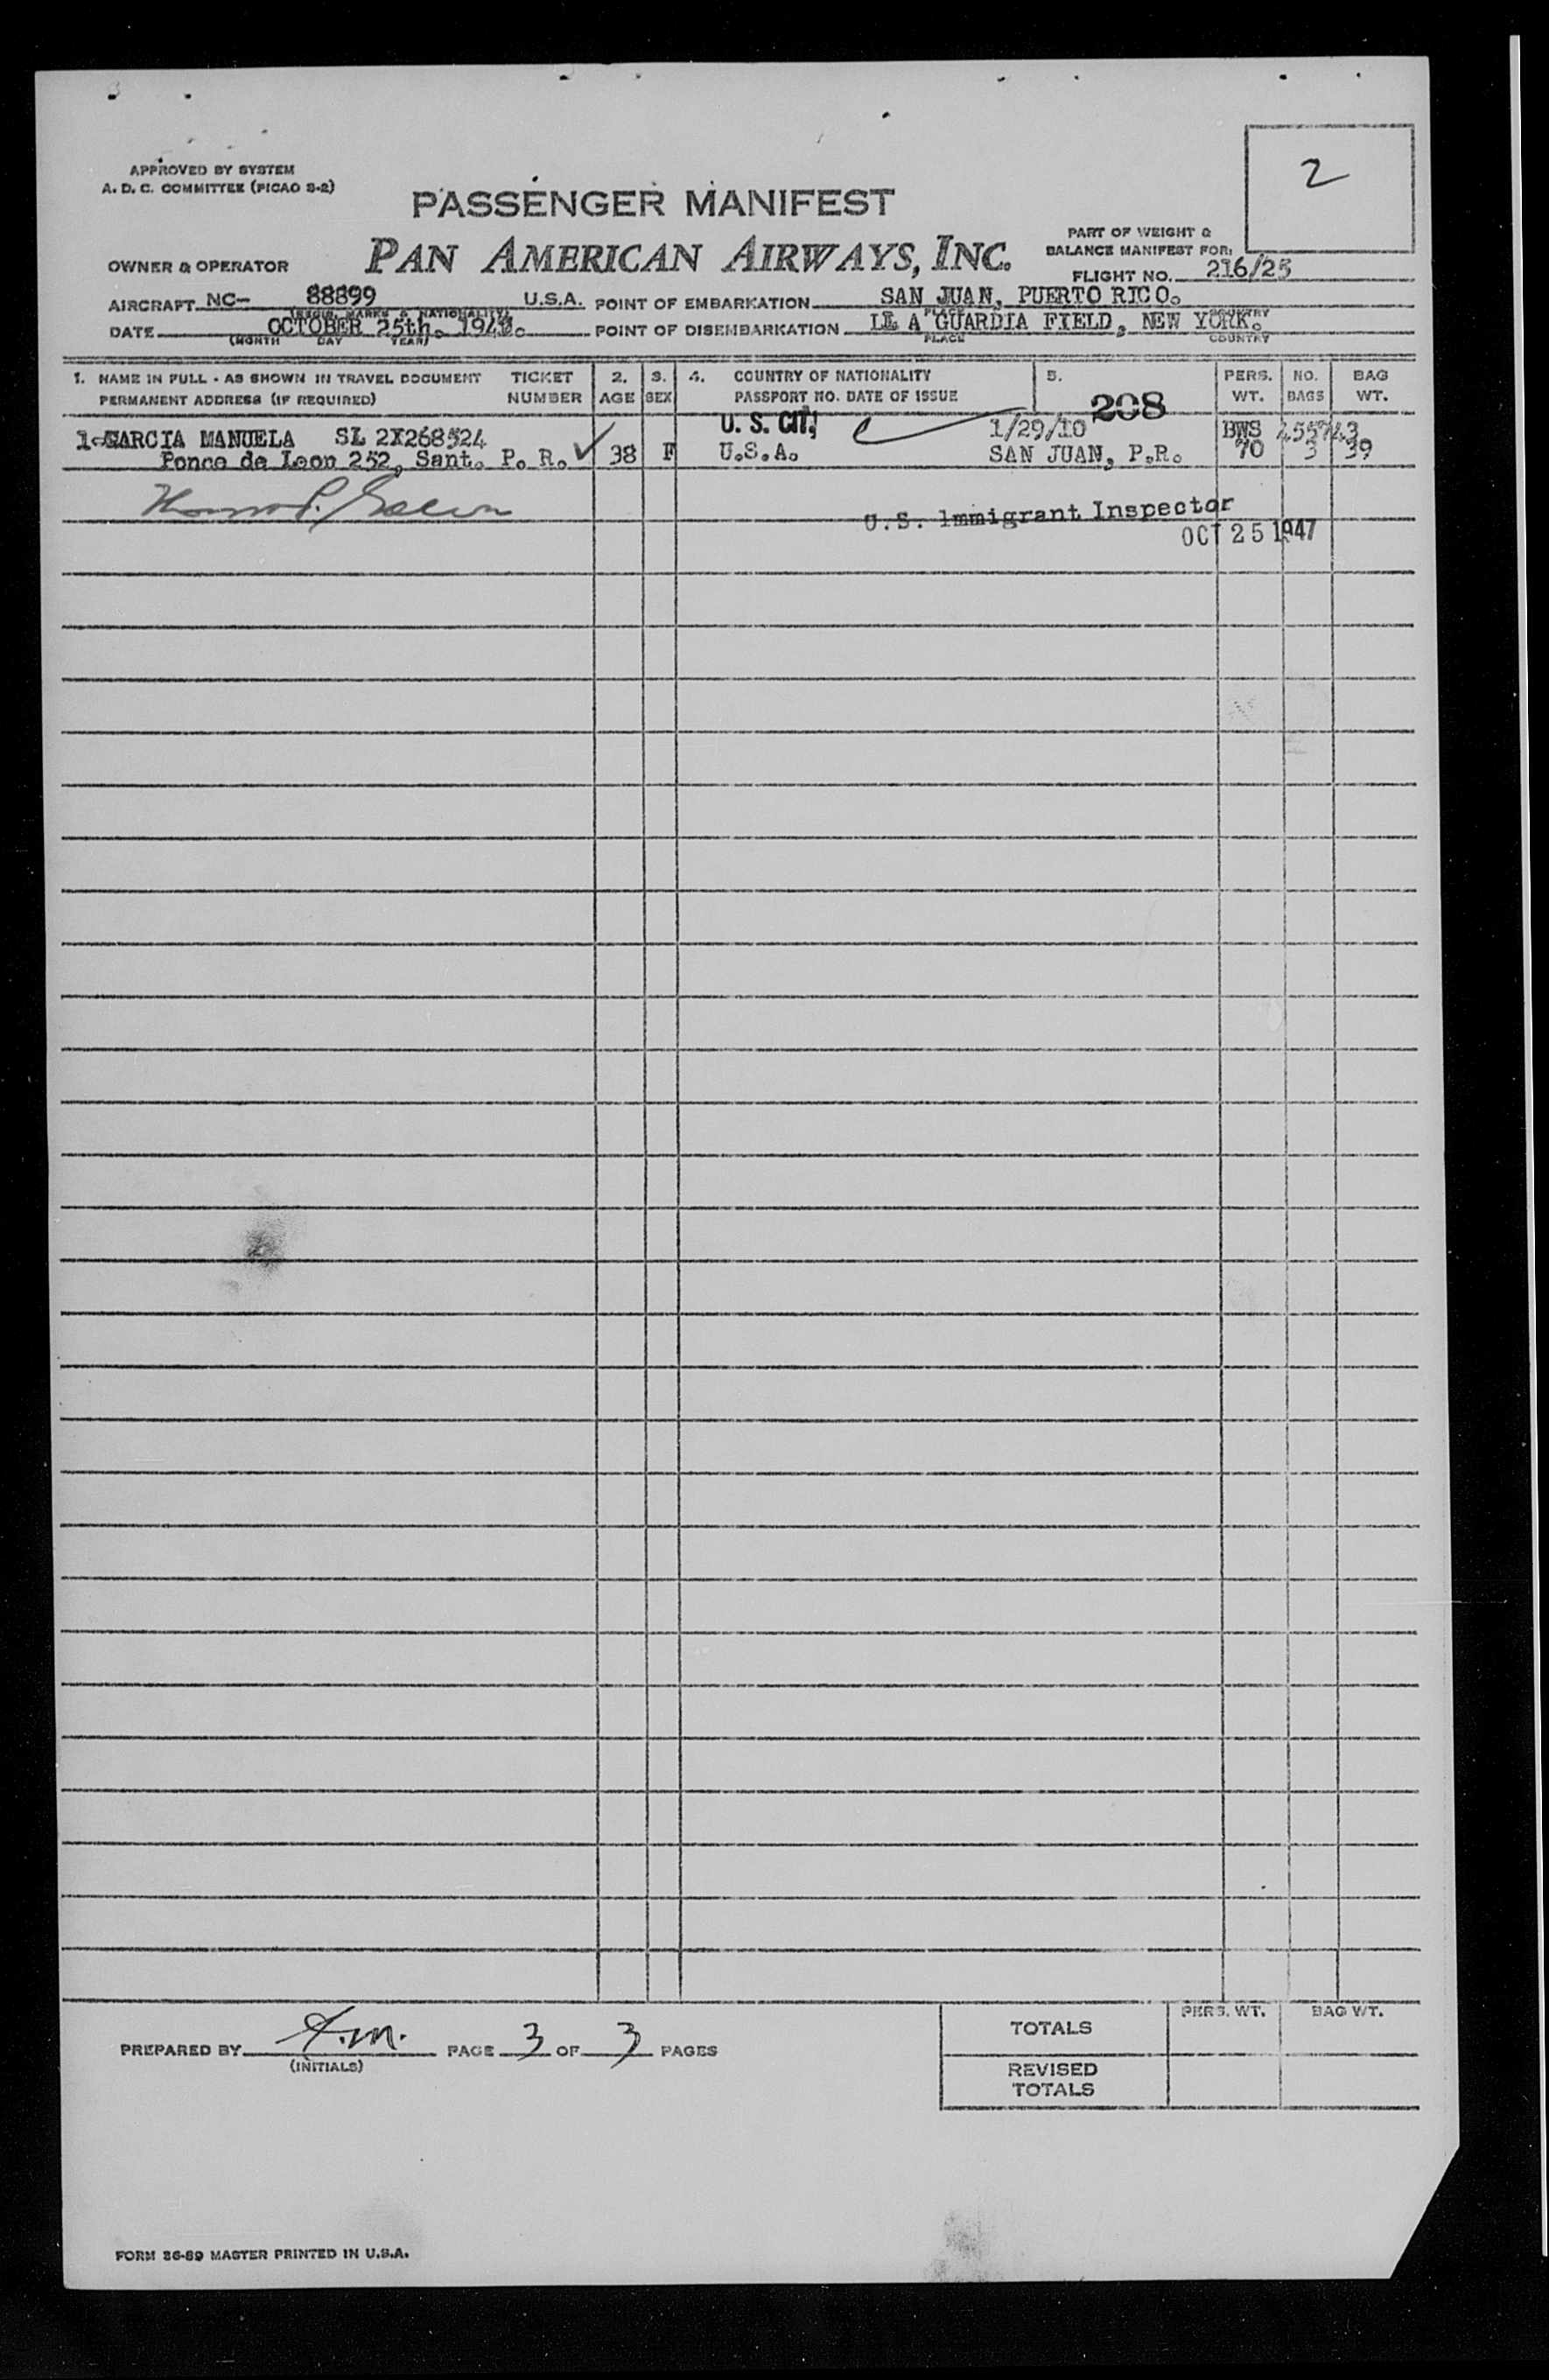 2
APPROVED BY SYSTEM
A. D. C. COMMITTEE (PICAO S-2)
PASSENGER MANIFEST
PART OF WEIGHT &
BALANCE MANIFEST FOR:
OWNER & OPERATOR PAN AMERICAN AIRWAYS, INC.
FLIGHT NO. 216/25
AIRCRAFT NC- 88899 U.S.A. POINT OF EMBARKATION SAN JUAN, PUERTO RICO.
(REGIS. MARKS & NATIONALITY) PLACE COUNTRY
DATE OCTOBER 25th. 1947. POINT OF DISEMBARKATION LE A GUARDIA FIELD, NEW YORK.
(MONTH DAY YEAR) PLACE COUNTRY
1. NAME IN FULL - AS SHOWN IN TRAVEL DOCUMENT TICKET 2. 3. 4. COUNTRY OF NATIONALITY 5. PERS. NO. BAG
PERMANENT ADDRESS (IF REQUIRED) NUMBER AGE SEX PASSPORT NO. DATE OF ISSUE WT. BAGS WT.
208
U. S. CIT.
1-GARCIA MANUELA SL 2X268524 1/29/10 BWS 455743
Ponce de Leon 252, Sant. P. R. 38 F U.S.A. SAN JUAN, P.R. 70 3 39
U.S. Immigrant Inspector
OCT 25 1947
PERS. WT. BAG WT.
TOTALS
PREPARED BY PAGE 3 OF 3 PAGES
(INITIALS)
REVISED
TOTALS
FORM 36-89 MASTER PRINTED IN U.S.A.